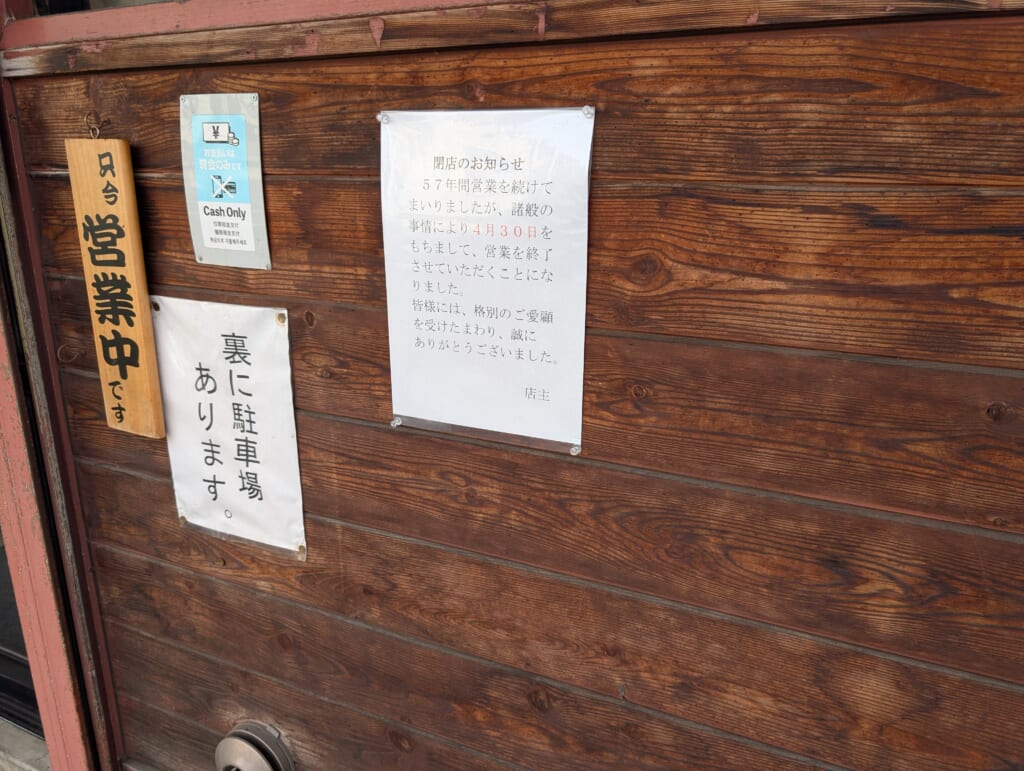 只今営業中です
¥
お支払いは
現金のみです
Cash Only
仅限现金支付
僅限現金支付
裏に駐車場
あります。
閉店のお知らせ
５７年間営業を続けて
まいりましたが、諸般の
事情により４月３０日を
もちまして、営業を終了
させていただくことにな
りました。
皆様には、格別のご愛顧
を受けたまわり、誠に
ありがとうございました。
店主